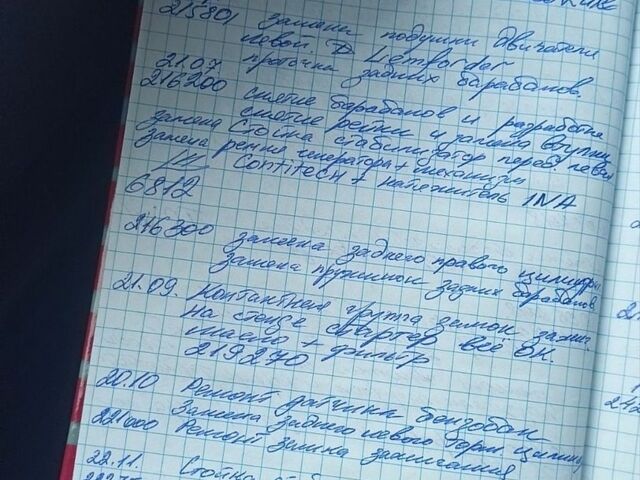 215801 замени подушки двигателя
левой. Lemforder
21.07 протяжка задних барабанов.
216200 снятие барабанов и разработка
снятие рейки и замена втулки
замена Стойка стабилизатор перед. левая
замена ремня генератора + механизм
Contitech + натяжитель INA
6812
216300 замена заднего правого цилиндра
замена пружинок задних барабанов
21.09. контактная группа замок зажиг.
на стенде стартер всё ок.
масло + фильтр
219270
20.10 Ремонт датчика бензобак
замена заднего левого торм цилинд
221000 Ремонт замка зажигания
22.11. Стойка